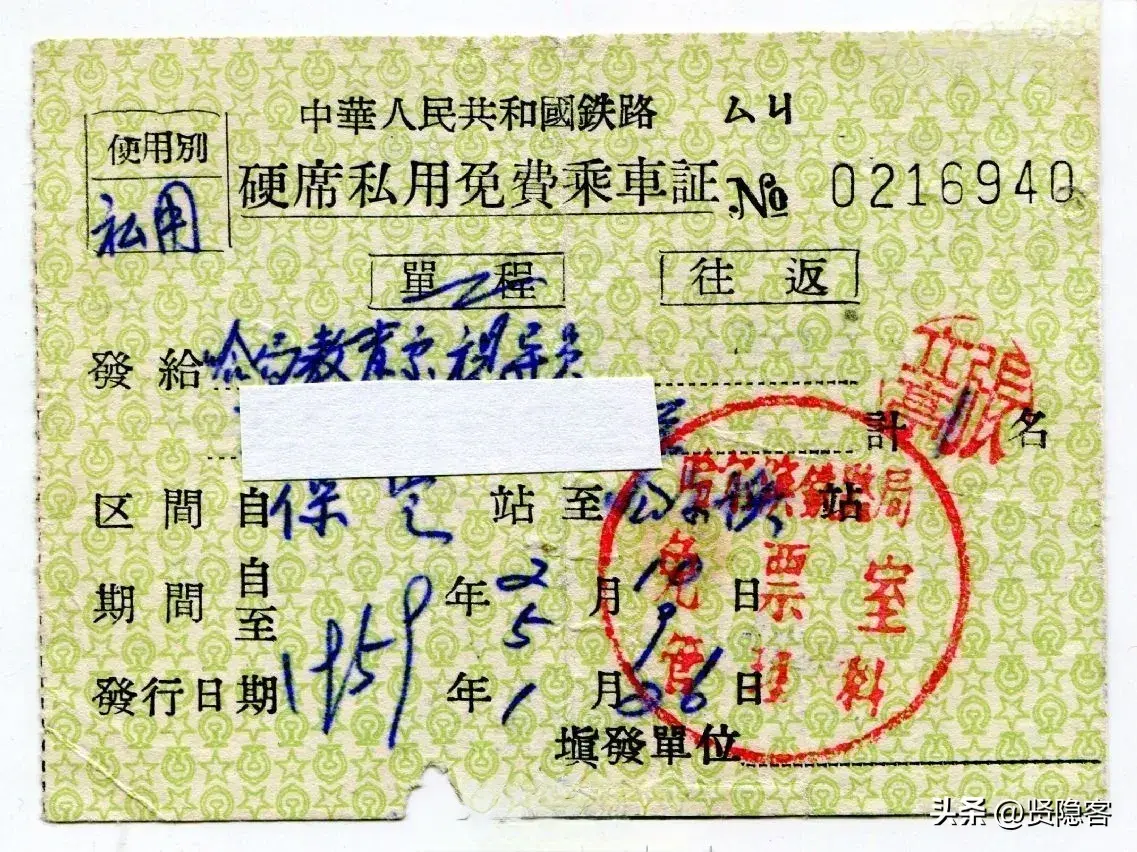 中華人民共和國鉄路 ムЧ
使用別
私用
硬席私用免費乘車証 № 0216940
單程 往返
發給 哈局教育室視導員
計 1 名
区間 自 保定 站 至 站
期間 自 至 1959 年 2 月 10 日
5 9
發行日期 年 1 月 26 日
填發單位
哈尔濱鉄路局
免票室
管理科
頭条 @贤隐客